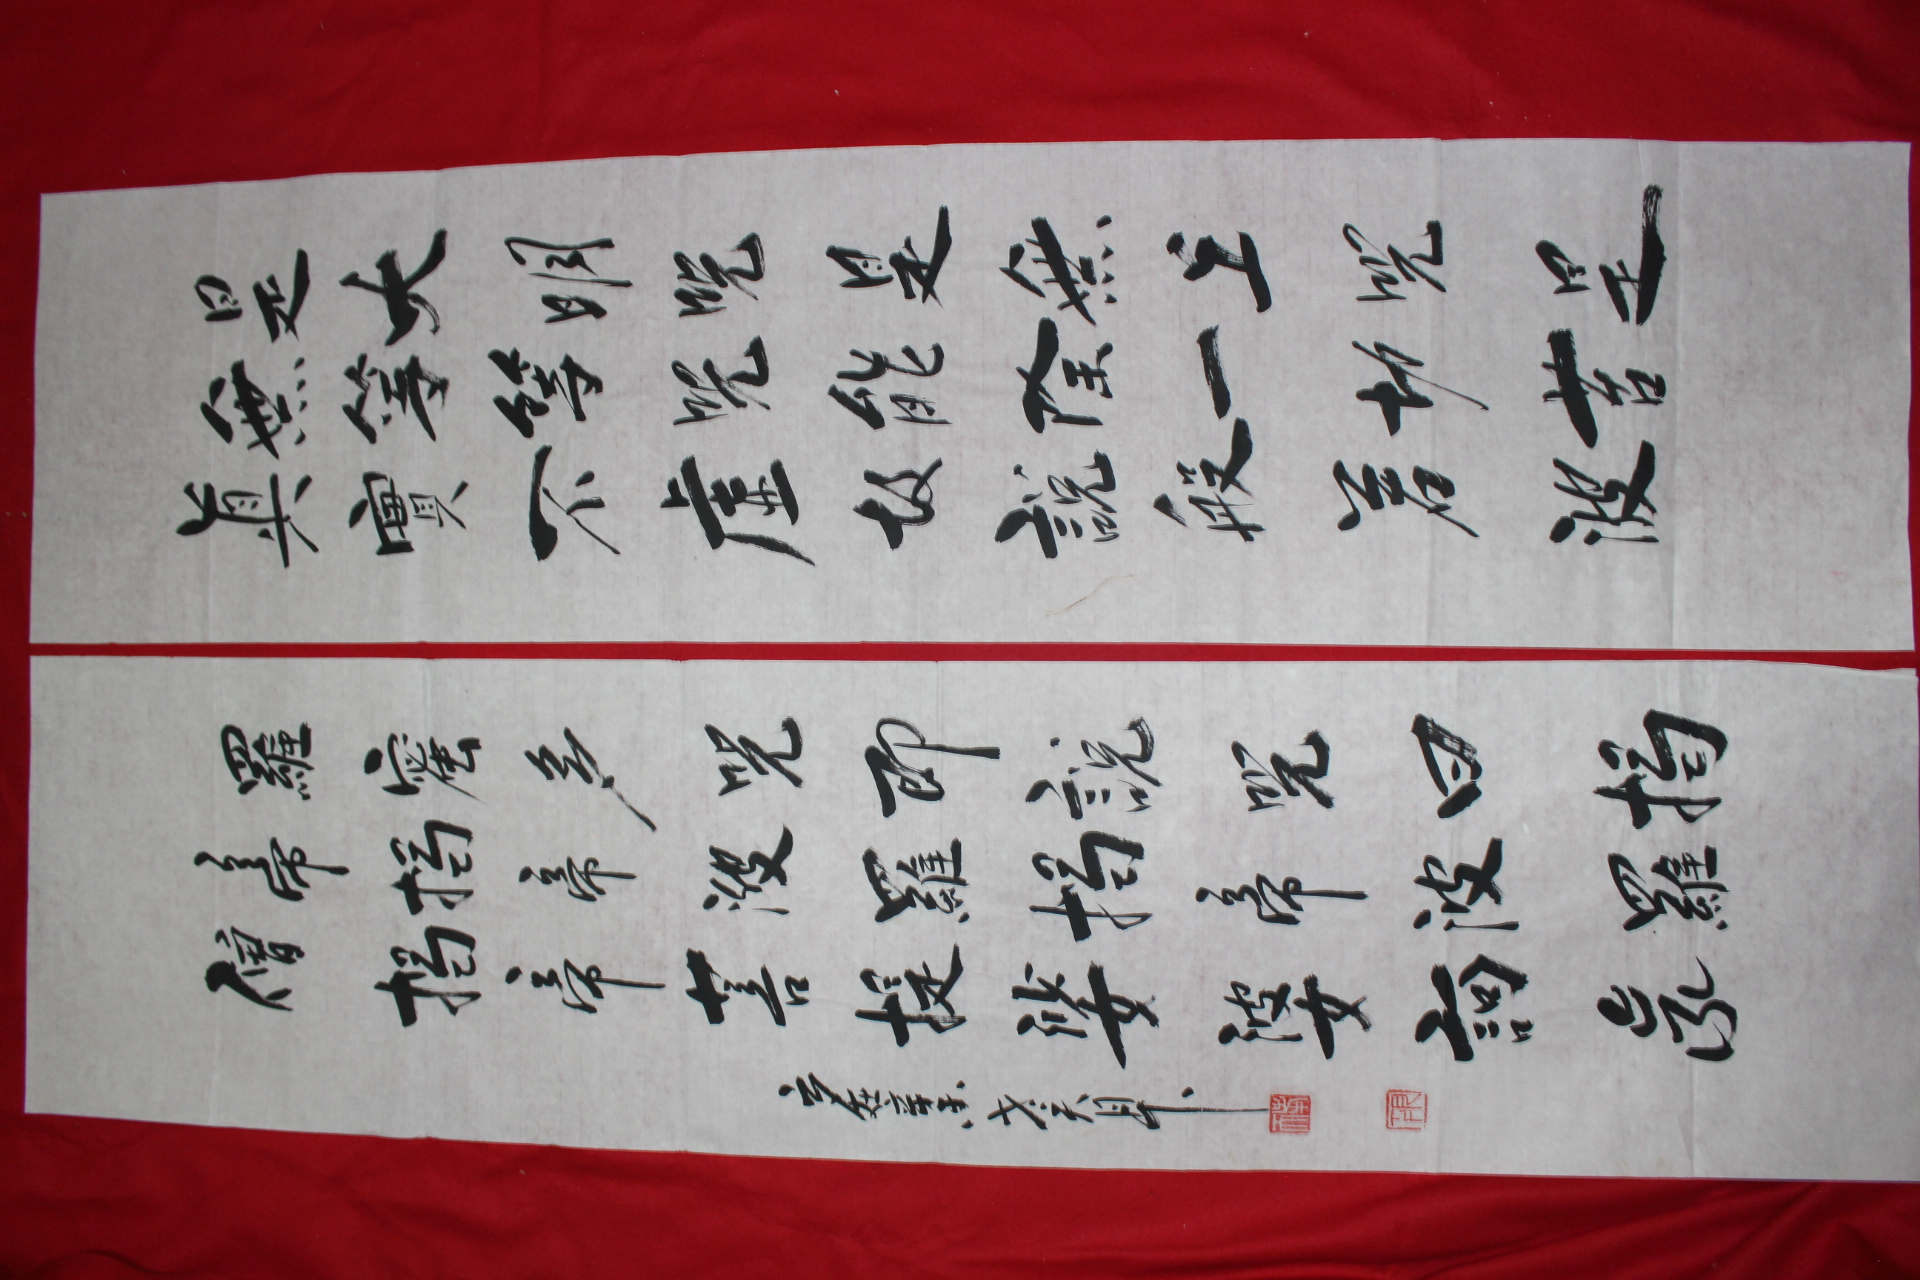 是大明咒是無上咒是
無等等咒能除一切苦
眞實不虛故說般若波
羅蜜多咒即說咒曰揭
帝揭帝波羅揭帝波羅
僧揭帝菩提娑婆訶
歲在辛未